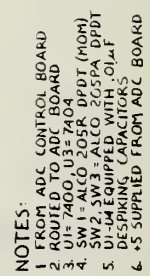 NOTES:
1 FROM ADC CONTROL BOARD
2. ROUTED TO ADC BOARD
3. U1=7400, U3=7404
4. SW1= ALCO 205R DPDT (MOM)
SW2, SW3= ALCO 205PA DPDT
5. U1-U4 EQUIPPED WITH .01µF
DESPIKING CAPACITORS
6. +5 SUPPLIED FROM ADC BOARD